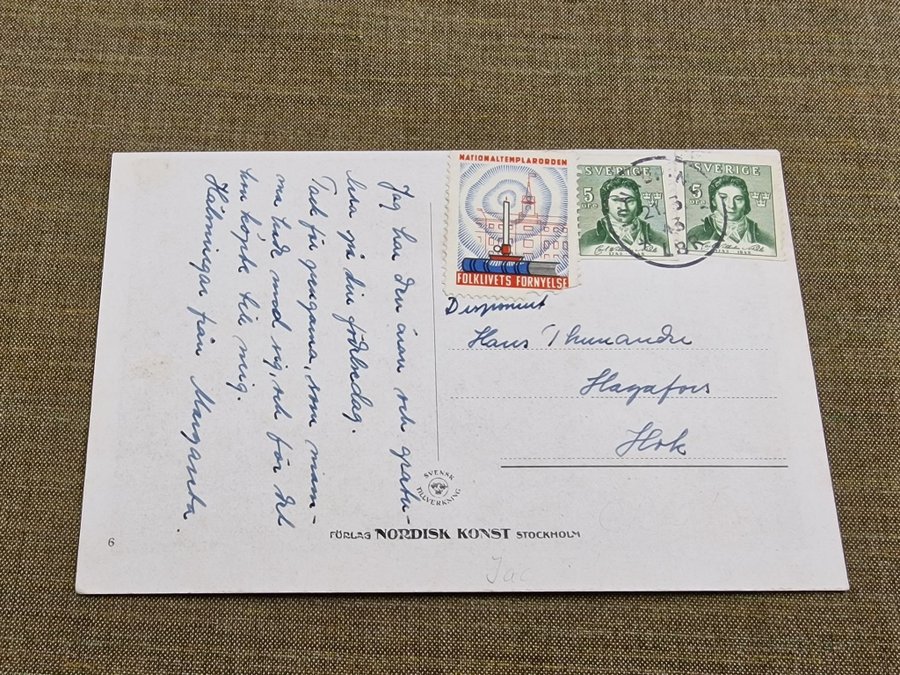 Jag har den äran och gratu-
lera på din födelsedag.
Tack för pengarna, som mam-
ma hade med sig, och för det
hon köpte till mig.
Hälsningar från Margareta.
NATIONALTEMPLARORDEN
FOLKLIVETS FÖRNYELSE
SVERIGE
5
ÖRE
SVERIGE
5
ÖRE
Disponent
Hans Thunandre
Hagafors
Hok
SVENSK
TILLVERKNING
FÖRLAG NORDISK KONST STOCKHOLM
6
Jac